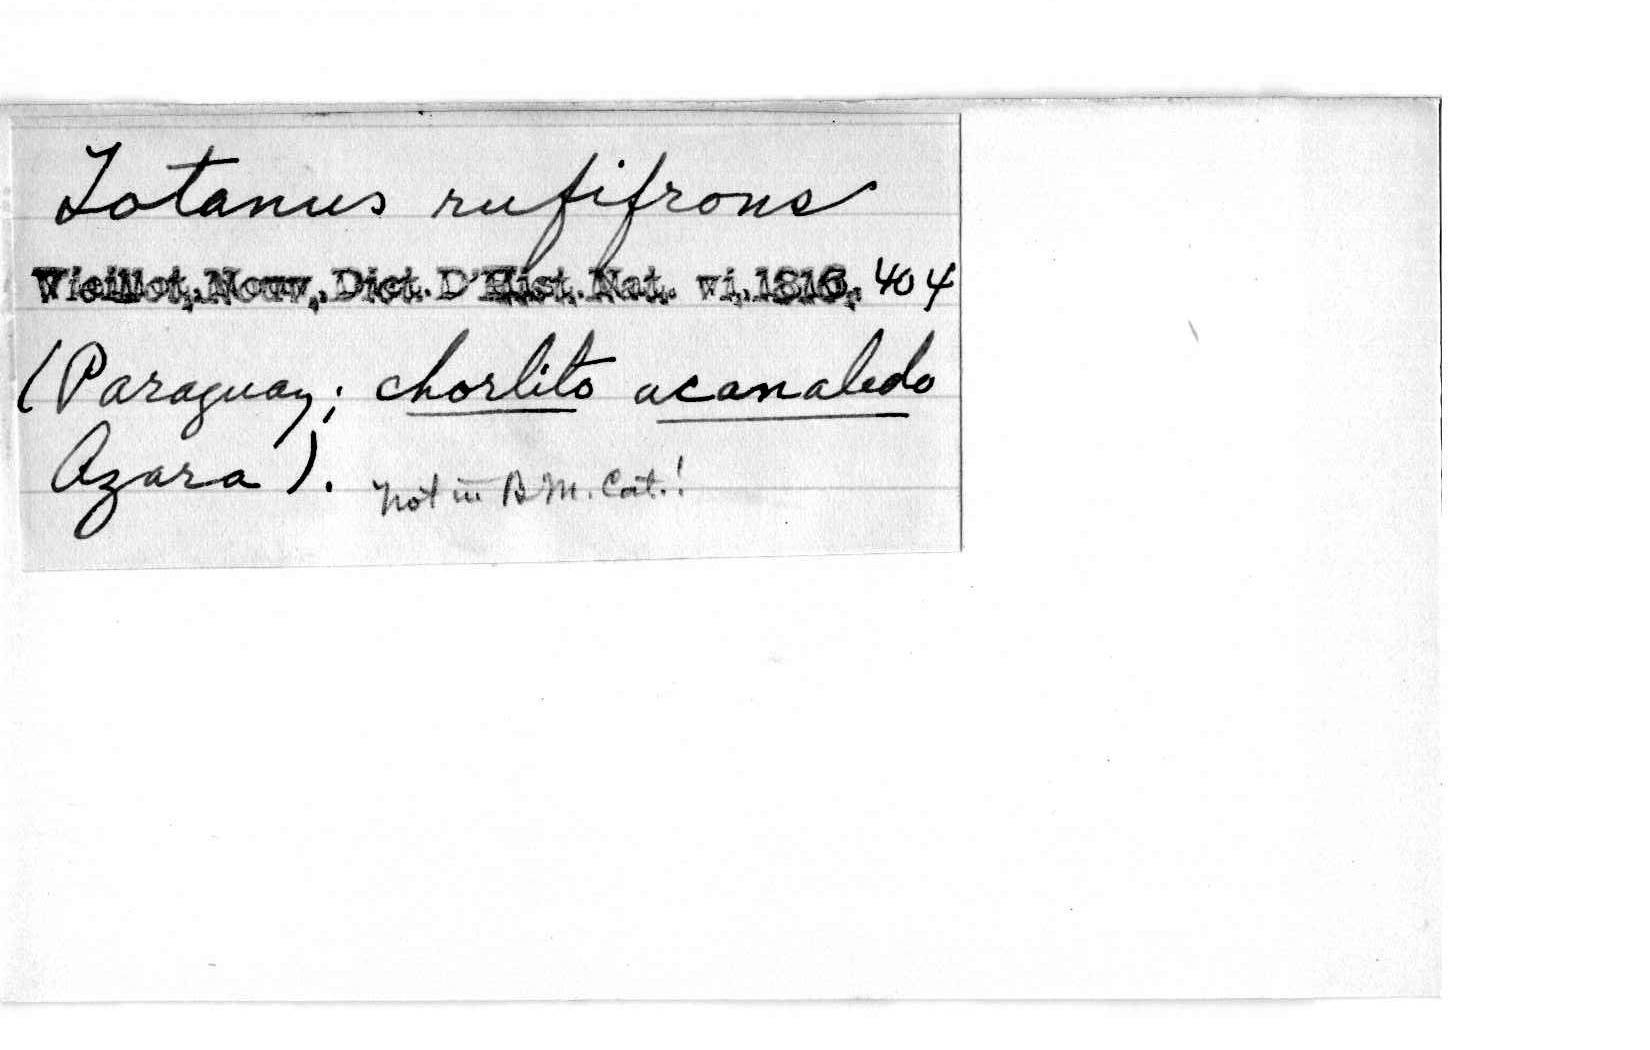 Totanus rufifrons
Vieillot, Nouv. Dict. D'Hist. Nat. vi, 1816, 404
(Paraguay; chorlito acanalado
Azara). Not in B.M. Cat.!